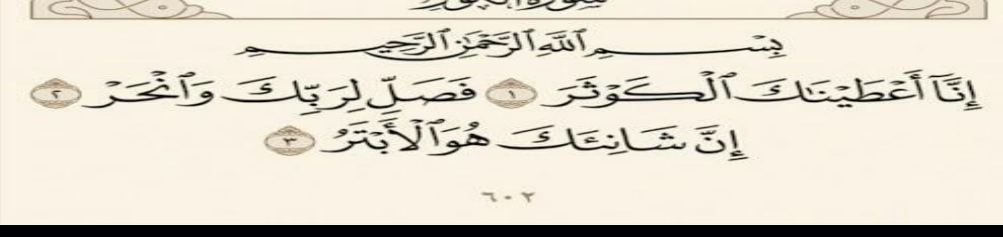 بِسْمِ ٱللَّهِ ٱلرَّحْمَٰنِ ٱلرَّحِيمِ
إِنَّآ أَعْطَيْنَٰكَ ٱلْكَوْثَرَ ١ فَصَلِّ لِرَبِّكَ وَٱنْحَرْ ٢
إِنَّ شَانِئَكَ هُوَ ٱلْأَبْتَرُ ٣
٦٠٢